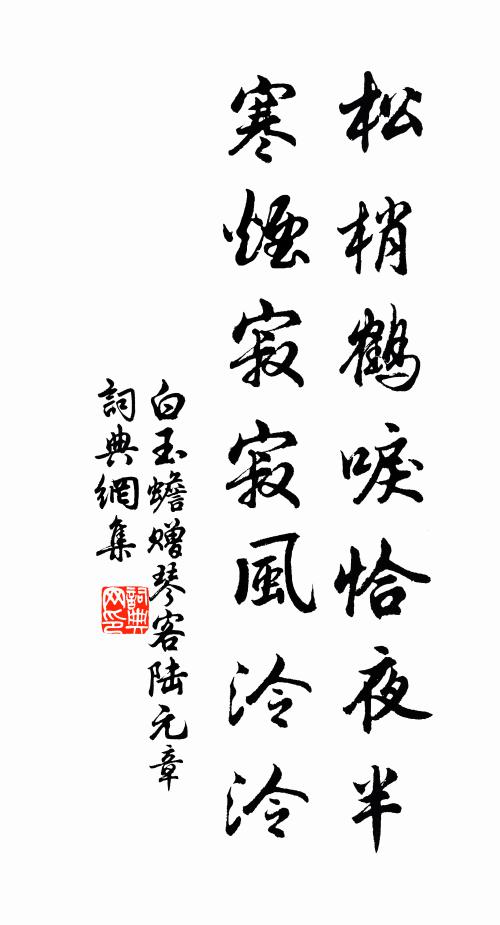 松梢鶴唳恰夜半
寒煙寂寂風泠泠
白玉蟾赠琴客陆元章
詞典網集
詞典网印